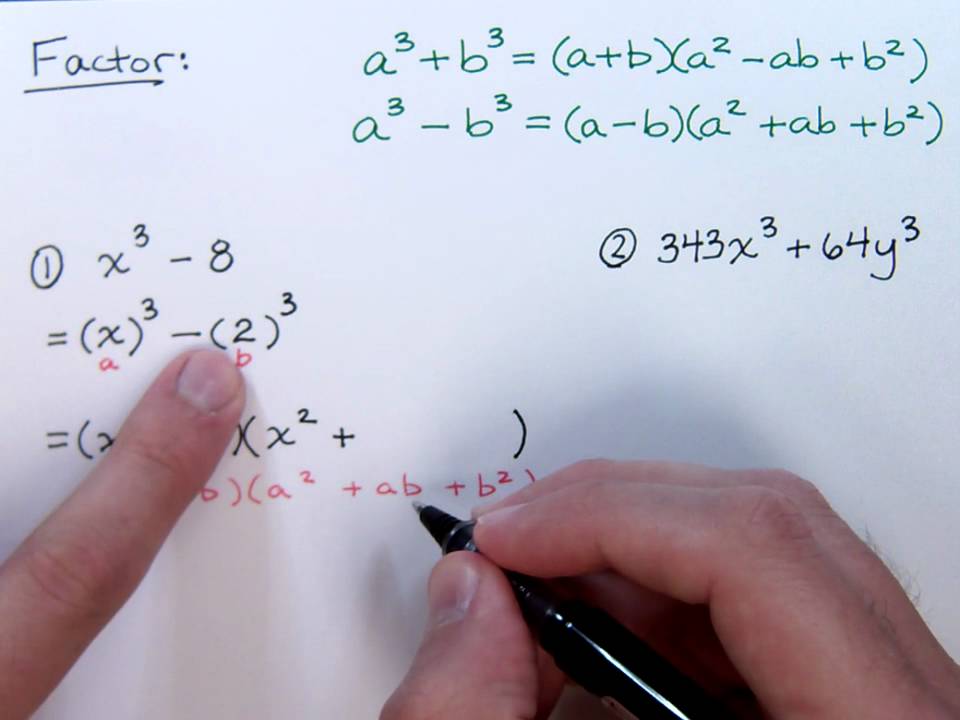 Factor:
a³ + b³ = (a+b)(a² - ab + b²)
a³ - b³ = (a-b)(a² + ab + b²)
① x³ - 8
= (x)³ - (2)³
a b
= (x )(x² + )
b)(a² + ab + b²)
② 343x³ + 64y³